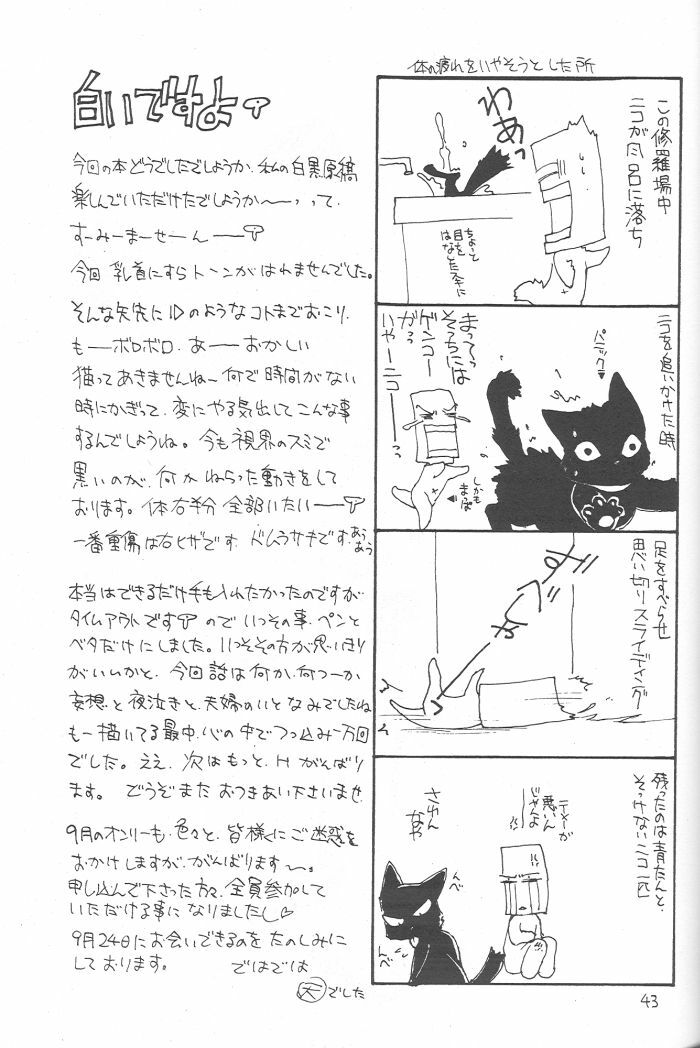 白いですよ
今回の本どうでしたでしょうか、私の白黒原稿
楽しんでいただけたでしょうか〜ーっって、
すーみーまーせーんー
今回 乳首にすらトーンがはれませんでした。
そんな矢先にDのようなコトまでおこり、
もーーボロボロ、あーーおかしい
猫ってあきませんね〜何で時間がない
時にかぎって、変にやる気出してこんな事
するんでしょうね。今も視界のスミで
黒いのが、何かねらった動きをして
おります。体右半分全部いたいーー
一番重傷は右ヒザです、ドムラサキです、あうあう
本当はできるだけ手も入れたかったのですが
タイムアウトです ので いっその事、ペンと
ベタだけにしました。いっそその方が思いきり
がいいかと、今回話は何か、何つーか
妄想と夜泣きと、夫婦のいとなみでしたね
もー描いてる最中、心の中でつっ込み一万回
でした。ええ、次はもっと、H がんばり
ます。 どうぞまた おつきあい下さいませ
9月のオンリーも、色々と、皆様にご迷惑を
おかけしますが、がんばります〜。
申し込んで下さった方々、全員参加して
いただける事になりましたし♡
9月24日にお会いできるのを たのしみに
しております。 ではでは
でした
体の疲れをいやそうとした所
この修羅場中
ニコが風呂に落ち
わぁっ
ちょっと
目を
はなしたスキに
ニコを追いかけた時
パニック
まってぇっ
そっちには
ゲンコー
がぁっ
いやーニコーーっ
しかも
まっぱ
足をすべらせ
思い切りスライディング
ずべしゃ
残ったのは青たんと、
そっけないニコ一匹
テメーが
悪いん
じゃんよ
さわん
なや
んべ
んべ
43